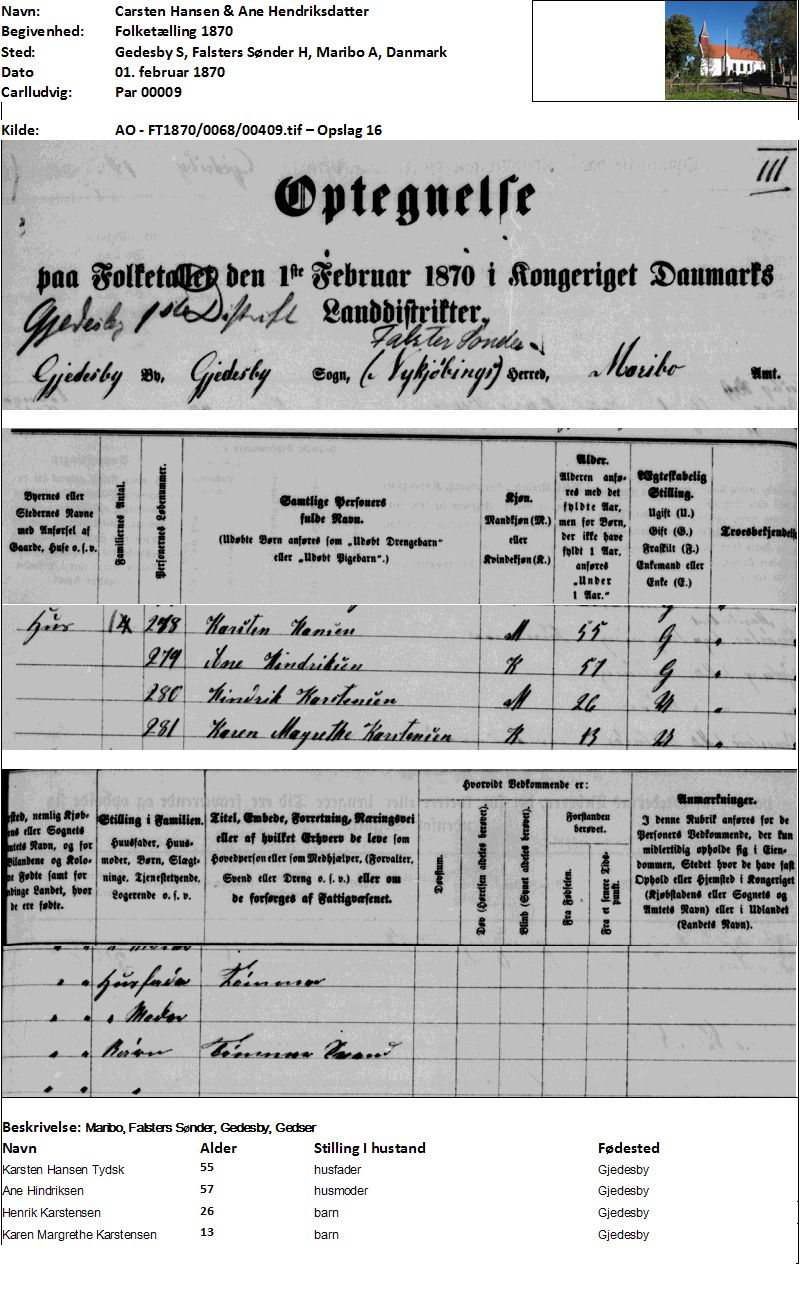 Navn: Carsten Hansen & Ane Hendriksdatter
Begivenhed: Folketælling 1870
Sted: Gedesby S, Falsters Sønder H, Maribo A, Danmark
Dato 01. februar 1870
Carlludvig: Par 00009
Kilde: AO - FT1870/0068/00409.tif – Opslag 16
III
Optegnelse
paa Folketallet den 1ste Februar 1870 i Kongeriget Danmarks
Gjedesby 1ste Distrikt Landdistrikter,
Falster Sønder
Gjedesby By, Gjedesby Sogn, (Nykjøbings) Herred, Maribo Amt.
Byernes eller Stedernes Navne med Anførsel af Gaarde, Huse o. s. v.
Familiernes Antal.
Personernes Løbenummer.
Samtlige Personers fulde Navn.
(Udøbte Børn anføres som „Udøbt Drengebarn" eller „Udøbt Pigebarn".)
Kjøn. Mandkjøn (M.) eller Kvindekjøn (K.)
Alder. Alderen anføres med det fyldte Aar, men for Børn, der ikke have fyldt 1 Aar, anføres „Under 1 Aar."
Ægteskabelig Stilling. Ugift (U.) Gift (G.) Fraskilt (F.) Enkemand eller Enke (E.)
Troesbekjendelse
Hus 14 278 Karsten Hansen M 55 G
279 Ane Hindriksen K 57 G
280 Hindrik Karstensen M 26 U
281 Karen Magrethe Karstensen K 13 U
Hvorvidt Vedkommende er:
Stilling i Familien. Huusfader, Huusmoder, Børn, Slægtninge, Tjenestetyende, Logerende o. s. v.
Titel, Embede, Forretning, Næringsvei eller af hvilket Erhverv de leve som Hovedperson eller som Medhjælper, (Forvalter, Svend eller Dreng o. s. v.) eller om de forsørges af Fattigvæsenet.
Døvstum.
Døv (Hørelsen aldeles berøvet).
Blind (Synet aldeles berøvet).
Forstanden berøvet.
Fra Fødselen.
Fra et senere Tidspunkt.
Anmærkninger.
I denne Rubrik anføres for de Personers Vedkommende, der kun midlertidig opholde sig i Eiendommen, Stedet hvor de have fast Ophold eller Hjemsted i Kongeriget (Kjøbstadens eller Sognets og Amtets Navn) eller i Udlandet (Landets Navn).
Husfader Tømmer
Moder
Børn Tømmer Svend
Beskrivelse: Maribo, Falsters Sønder, Gedesby, Gedser
Navn Alder Stilling I hustand Fødested
Karsten Hansen Tydsk 55 husfader Gjedesby
Ane Hindriksen 57 husmoder Gjedesby
Henrik Karstensen 26 barn Gjedesby
Karen Margrethe Karstensen 13 barn Gjedesby